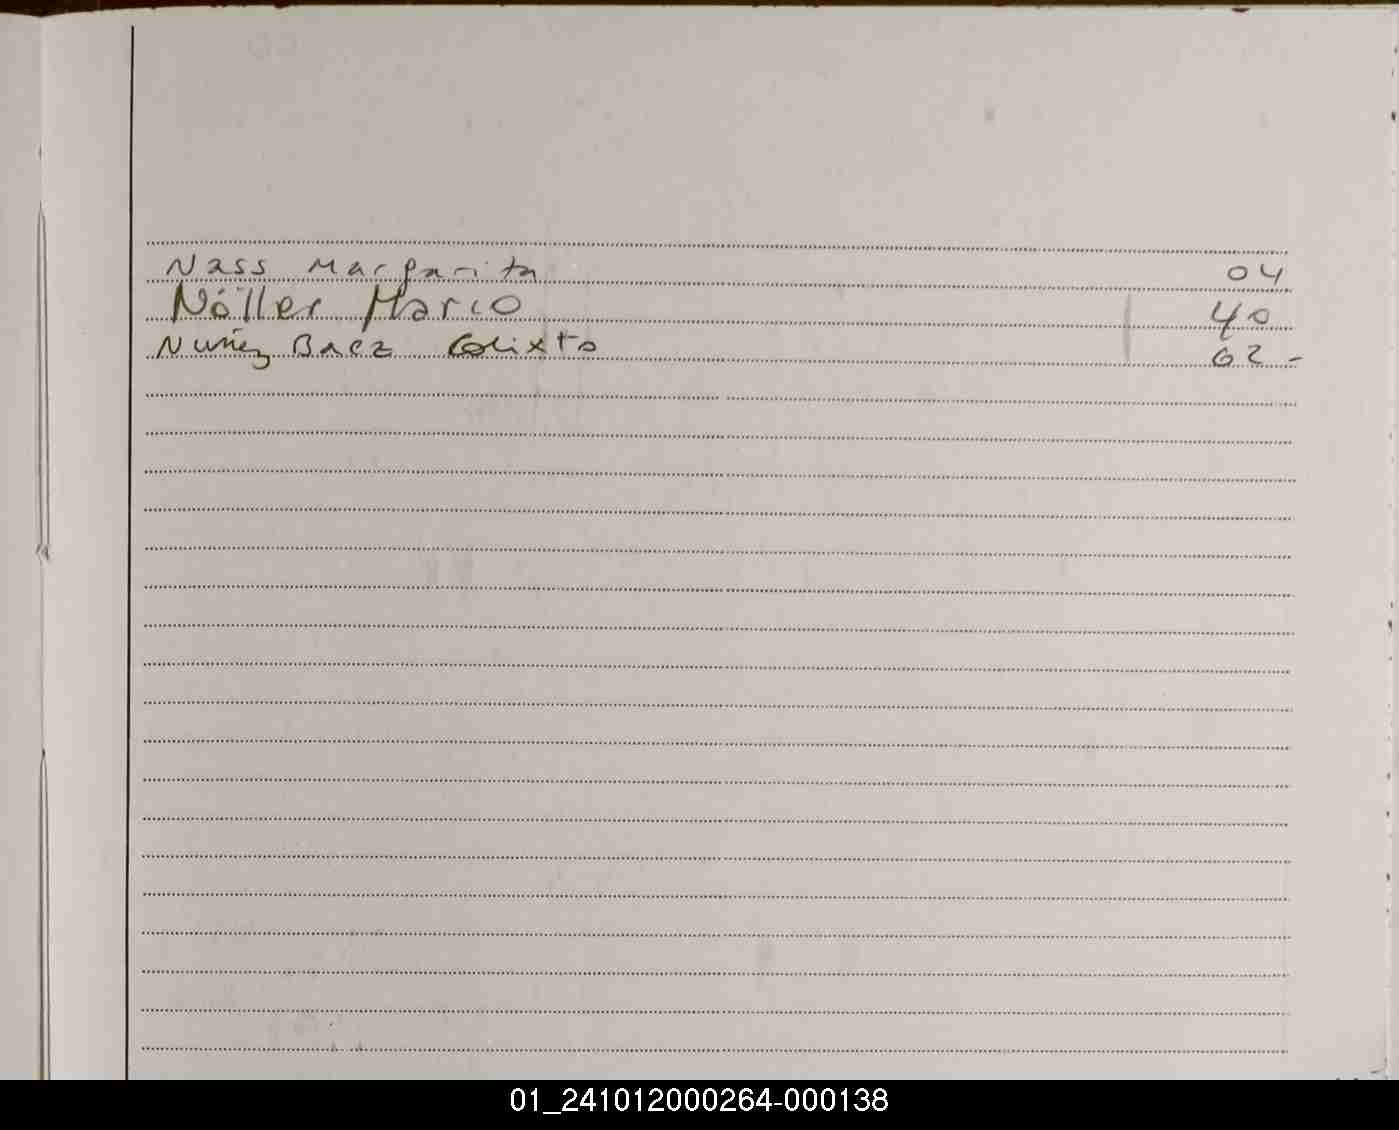 Nass Margarita 04
Nöller Mario 40
Nuñez Baez Calixto 62 -
01_241012000264-000138